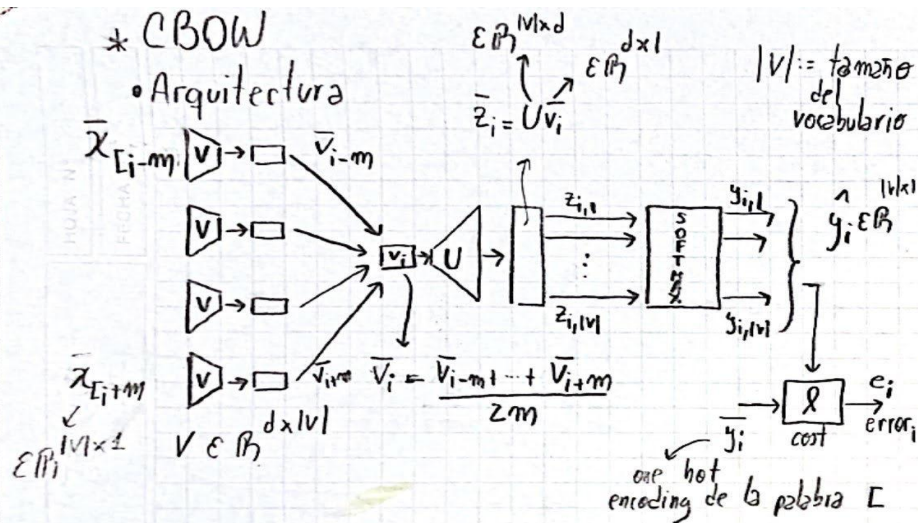 * CBOW
• Arquitectura
∈ ℝ^{|V|×d}
∈ ℝ^{d×1}
z̄_i = U v̄_i
|V| := tamaño
del
vocabulario
x̄_{[i-m}
V
v̄_{i-m}
V
V
V
v_i
U
z_{i,1}
⋮
z_{i,|V|}
SOFTMAX
y_{i,1}
y_{i,|V|}
ŷ_i ∈ ℝ^{|V|×1}
x̄_{[i+m}
∈ ℝ^{|V|×1}
v̄_{i+m}
V ∈ ℝ^{d×|V|}
v̄_i = (v̄_{i-m} + ... + v̄_{i+m}) / 2m
ȳ_i
ℓ
cost
e_i
error_i
one hot
encoding de la palabra [
HOJA N
FECHA